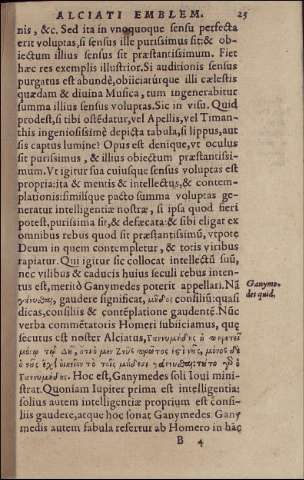 ALCIATI EMBLEM. 25
nis, &c. Sed ita in vnoquoque sensu perfecta
erit voluptas, si sensus ille purissimus sit: & ob-
iectum illius sensus sit præstantissimum. Fiet
hæc res exemplis illustrior. Si auditionis sensus
purgatus est abundè, obiiciatúrque illi cælestis
quædam & diuina Musica, tum ingenerabitur
summa illius sensus voluptas. Sic in visu. Quid
prodest, si tibi ostēdatur, vel Apellis, vel Timan-
this ingeniosissimè depicta tabula, si lippus, aut
sis captus lumine? Opus est denique, vt oculus
sit purissimus, & illius obiectum præstantissi-
mum. Vt igitur sua cuiusque sensus voluptas est
propria: ita & mentis & intellectus, & contem-
plationis: similíque pacto summa voluptas ge-
neratur intelligentiæ nostræ, si ipsa quod fieri
potest, purissima sit, & defæcata: & sibi eligat ex
omnibus rebus quod sit præstantissimū, vtpote
Deum in quem contempletur, & totis viribus
rapiatur. Qui igitur sic collocat intellectū suū,
nec vilibus & caducis huius seculi rebus inten-
tus est, meritò Ganymedes poterit appellari. Nā
gaudere significat, consiliū: quasi
dicas, consiliis & contēplatione gaudentē. Nūc
verba commētatoris Homeri subiiciamus, quę
secutus est noster Alciatus,
Hoc est, Ganymedes soli Ioui mini-
strat. Quoniam Iupiter prima est intelligentia:
solius autem intelligentiæ proprium est consi-
liis gaudere, atque hoc sonat Ganymedes Gany
medis autem fabula refertur ab Homero in hāc
B 4
Ganyme-
des quid.